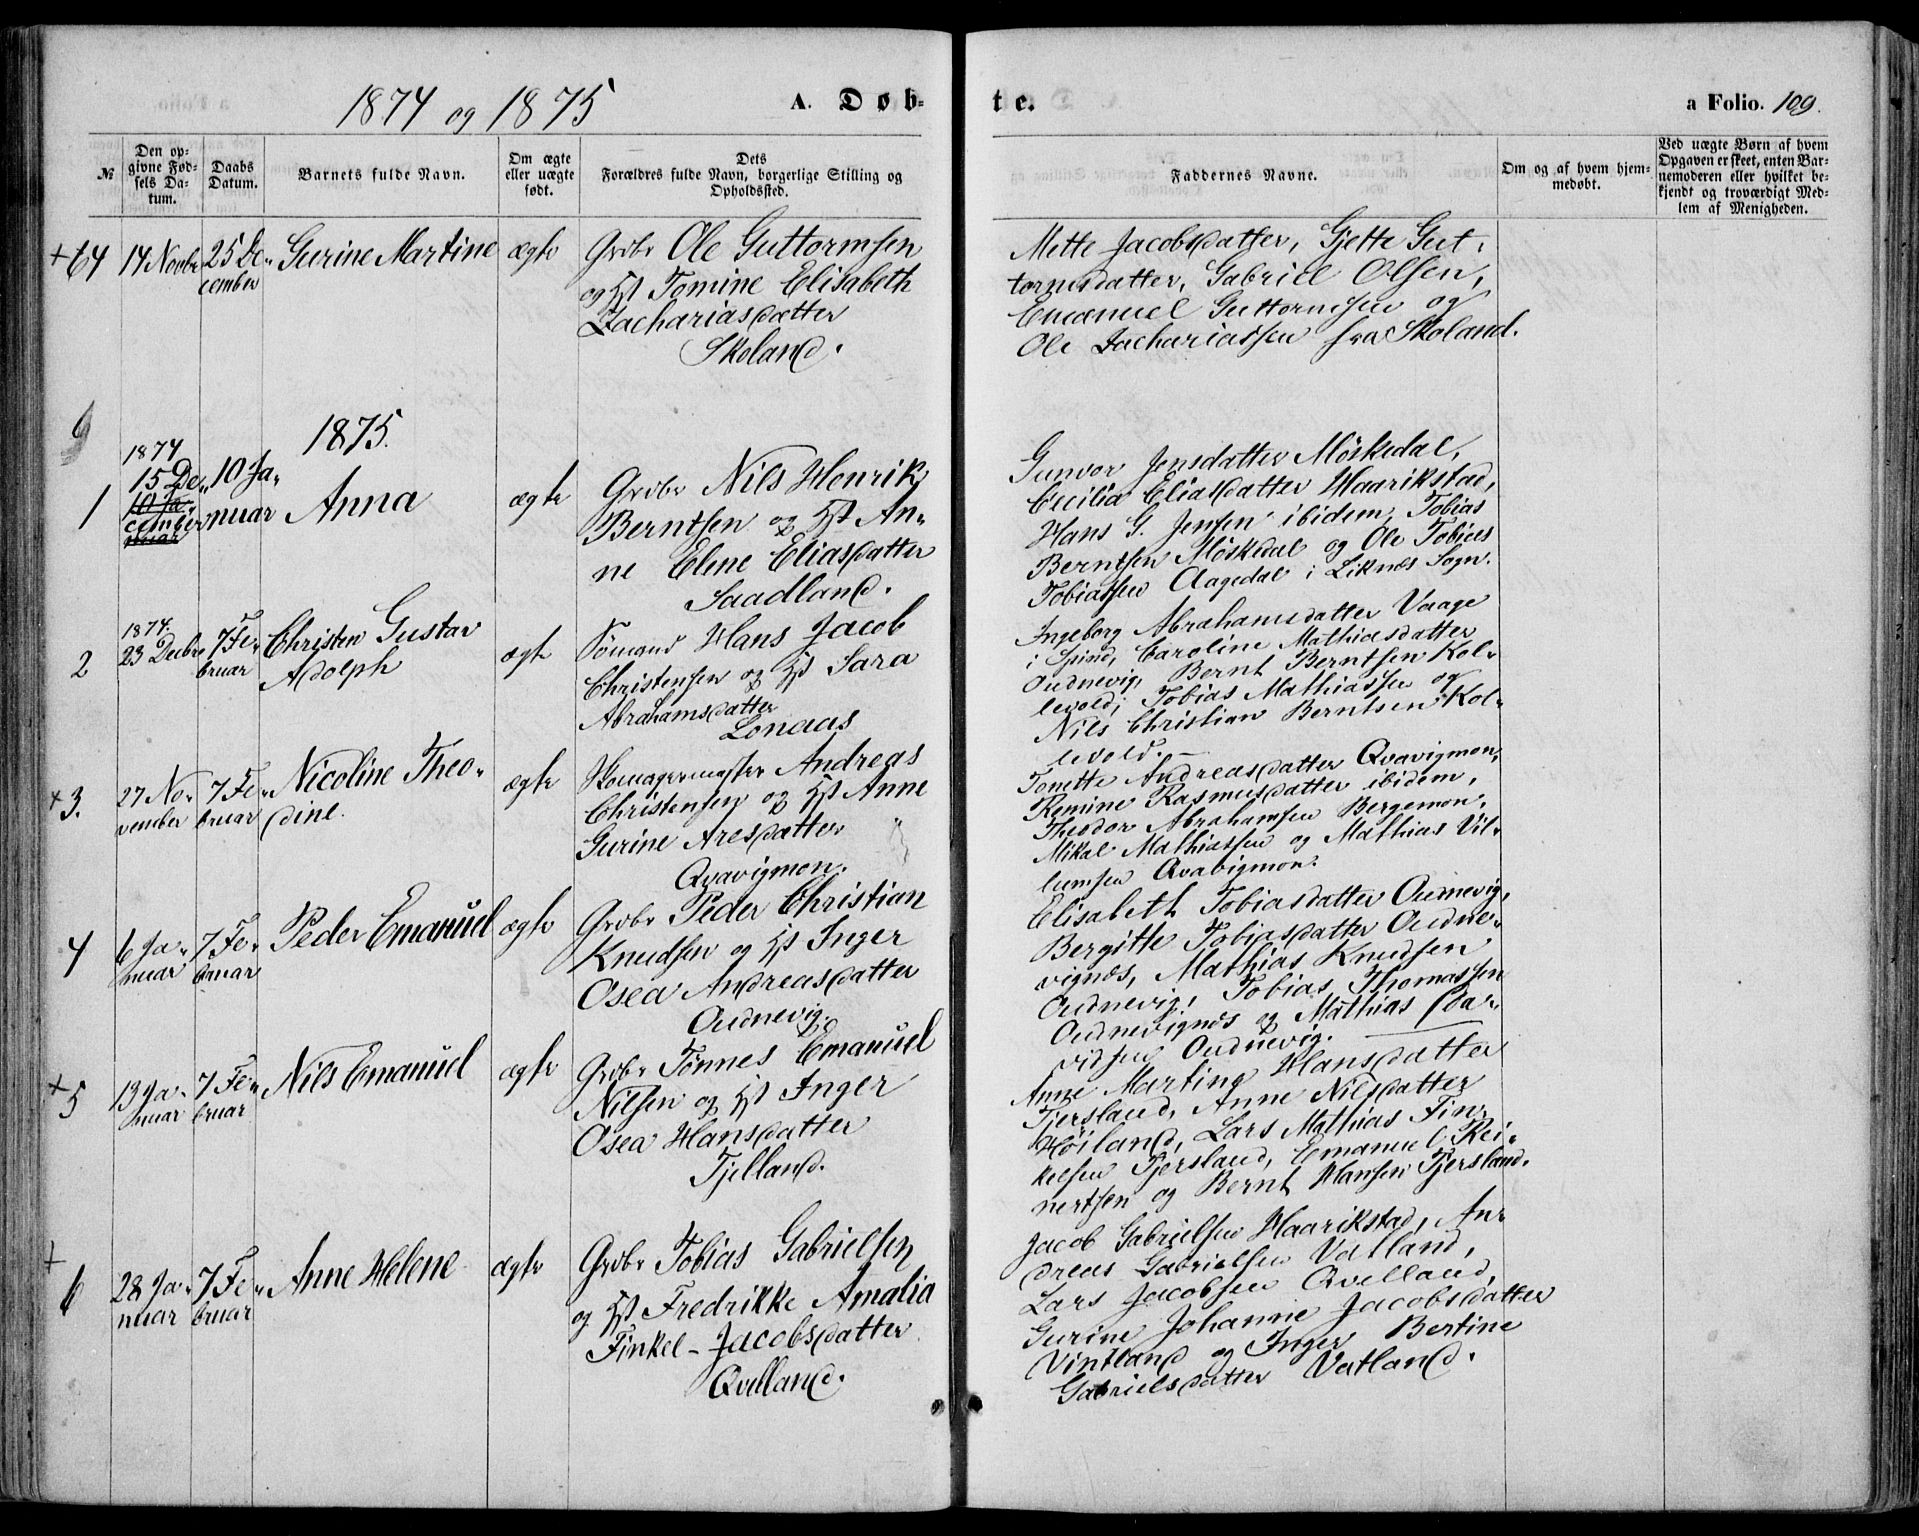 1874 og 1875
A. Døb-
te.
a Folio. 109.
№
Den op-
givne Fød-
sels Da-
tum.
Daabs
Datum.
Barnets fulde Navn.
Om ægte
eller uægte
født.
Dets
Forældres fulde Navn, borgerlige Stilling og
Opholdssted.
Faddernes Navne.
Om og af hvem hjem-
medøbt.
Ved uægte Børn af hvem
Opgaven er skeet, enten Bar-
nemoderen eller hvilket be-
kjendt og troværdigt Med-
lem af Menigheden.
+64
14 Novbr
25 De-
cember
Gurine Martine
ægte
Grdbr Ole Guttormsen
og Hst Tomine Elisabeth
Zachariasdatter
Skoland.
Mette Jacobsdatter, Gjette Gut-
tormsdatter, Gabriel Olsen,
Emanuel Guttormsen og
Ole Zachariassen fra Skoland.
1875.
1
1874
15 De-
10 Ja-
cember
nuar
10 Ja-
nuar
Anna
ægte
Grdbr Nils Henrik
Berntsen og Hst An-
ne Elene Eliasdatter
Saadland.
Gunvor Jensdatter Møskedal,
Cecilia Eliasdatter Haarikstad,
Hans G. Jensen ibidem, Tobias
Berntsen Møskdal og Ole Tobias
Tobiassen Aagedal i Liknæs Sogn.
2
1874.
23 Decbr
7 Fe-
bruar
Christen Gustav
Adolph
ægte
Sømand Hans Jacob
Christensen og Hst Sara
Abrahamsdatter
Lonaas
Ingeborg Abrahamsdatter Vaage
i Spind, Caroline Mathiasdatter
Oudnevig, Bernt Berntsen Kol-
levold, Tobias Mathiassen og
Nils Christian Berntsen Kol-
levold.
+3.
27 No-
vember
7 Fe-
bruar
Nicoline Theo-
dine.
ægte
Skomagermester Andreas
Christensen og Hst Anne
Gurine Aresdatter
Qvavigmon.
Tonette Andreasdatter Qvavigmon,
Remine Rasmusdatter ibidem,
Theodor Abrahamsen Bergemon,
Mikal Mathiassen og Mathias Vil-
lumsen Qvavigmon.
4
6 Ja-
nuar
7 Fe-
bruar
Peder Emanuel
ægte
Grdbr Peder Christian
Knudsen og Hst Inger
Osea Andreasdatter
Oudnevig.
Elisabeth Tobiasdatter Oudnevig,
Bergitte Tobiasdatter Oudne-
vignæs, Mathias Knudsen
Oudnevig, Tobias Thomassen
Oudnevignæs og Mathias Da-
vidsen Oudnevig.
+5
13 Ja-
nuar
7 Fe-
bruar
Nils Emanuel
ægte
Grdbr Tønnes Emanuel
Nilsen og Hst Inger
Osea Hansdatter
Tjelland.
Anne Martine Hansdatter
Tjersland, Anne Nilsdatter
Høiland, Lars Mathias Fin-
kelsen Tjersland, Emanuel Rei-
nertsen og Bernt Hansen Tjersland.
+
6
28 Ja-
nuar
7 Fe-
bruar
Anne Helene
ægte
Grdbr Tobias Gabrielsen
og Hst Fredrikke Amalia
Finkel-Jacobsdatter
Qvelland.
Jacob Gabrielsen Haarikstad, An-
dreas Gabrielsen Vatland,
Lars Jacobsen Qvelland,
Gurine Johanne Jacobsdatter
Vintland og Inger Bertine
Gabrielsdatter Vatland.